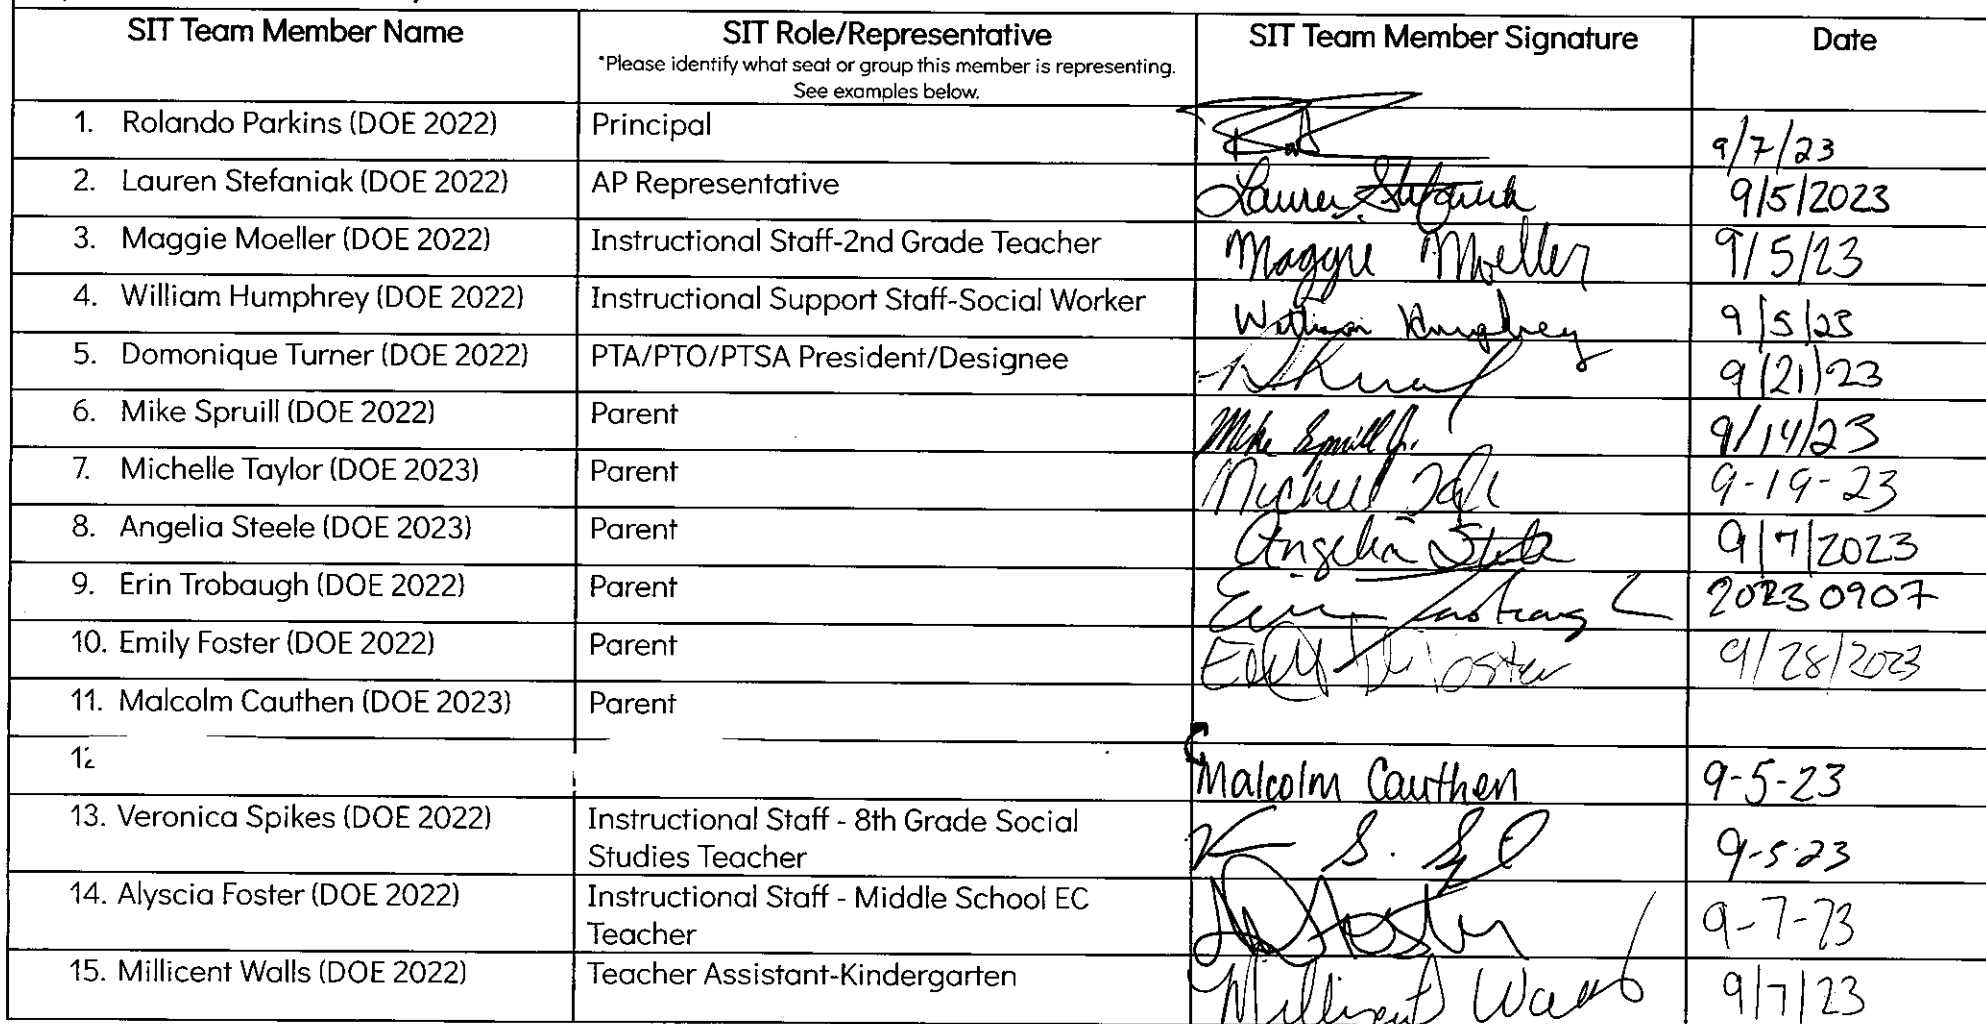 SIT Team Member Name SIT Role/Representative SIT Team Member Signature Date
*Please identify what seat or group this member is representing.
See examples below.
1. Rolando Parkins (DOE 2022) Principal 9/7/23
2. Lauren Stefaniak (DOE 2022) AP Representative Lauren Stefaniak 9/5/2023
3. Maggie Moeller (DOE 2022) Instructional Staff-2nd Grade Teacher Maggie Moeller 9/5/23
4. William Humphrey (DOE 2022) Instructional Support Staff-Social Worker William Humphrey 9/5/23
5. Domonique Turner (DOE 2022) PTA/PTO/PTSA President/Designee 9/21/23
6. Mike Spruill (DOE 2022) Parent Mike Spruill Jr. 9/14/23
7. Michelle Taylor (DOE 2023) Parent 9-19-23
8. Angelia Steele (DOE 2023) Parent Angelia Steele 9/7/2023
9. Erin Trobaugh (DOE 2022) Parent 20230907
10. Emily Foster (DOE 2022) Parent Foster 9/28/2023
11. Malcolm Cauthen (DOE 2023) Parent
12
Malcolm Cauthen 9-5-23
13. Veronica Spikes (DOE 2022) Instructional Staff - 8th Grade Social
Studies Teacher 9-5-23
14. Alyscia Foster (DOE 2022) Instructional Staff - Middle School EC
Teacher Foster 9-7-23
15. Millicent Walls (DOE 2022) Teacher Assistant-Kindergarten Millicent Walls 9/7/23